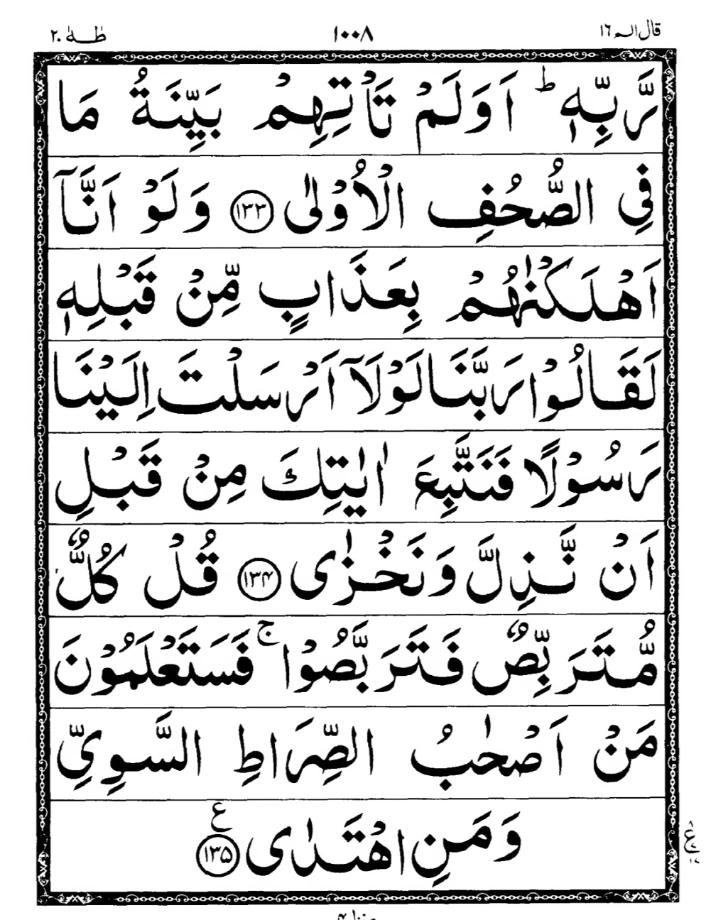 قال الم ١٦ ١٠٠٨ طٰهٰ ٢٠
رَّبِّهٖ ؕ اَوَلَمْ تَاْتِهِمْ بَيِّنَةُ مَا
فِي الصُّحُفِ الْاُوْلٰى ﴿١٣٣﴾ وَلَوْ اَنَّاۤ
اَهْلَكْنٰهُمْ بِعَذَابٍ مِّنْ قَبْلِهٖ
لَقَالُوْا رَبَّنَا لَوْلَاۤ اَرْسَلْتَ اِلَيْنَا
رَسُوْلًا فَنَتَّبِعَ اٰيٰتِكَ مِنْ قَبْلِ
اَنْ نَّذِلَّ وَنَخْزٰى ﴿١٣٤﴾ قُلْ كُلٌّ
مُّتَرَبِّصٌ فَتَرَبَّصُوْا ۚ فَسَتَعْلَمُوْنَ
مَنْ اَصْحٰبُ الصِّرَاطِ السَّوِيِّ
وَمَنِ اهْتَدٰى ﴿١٣٥﴾ ع